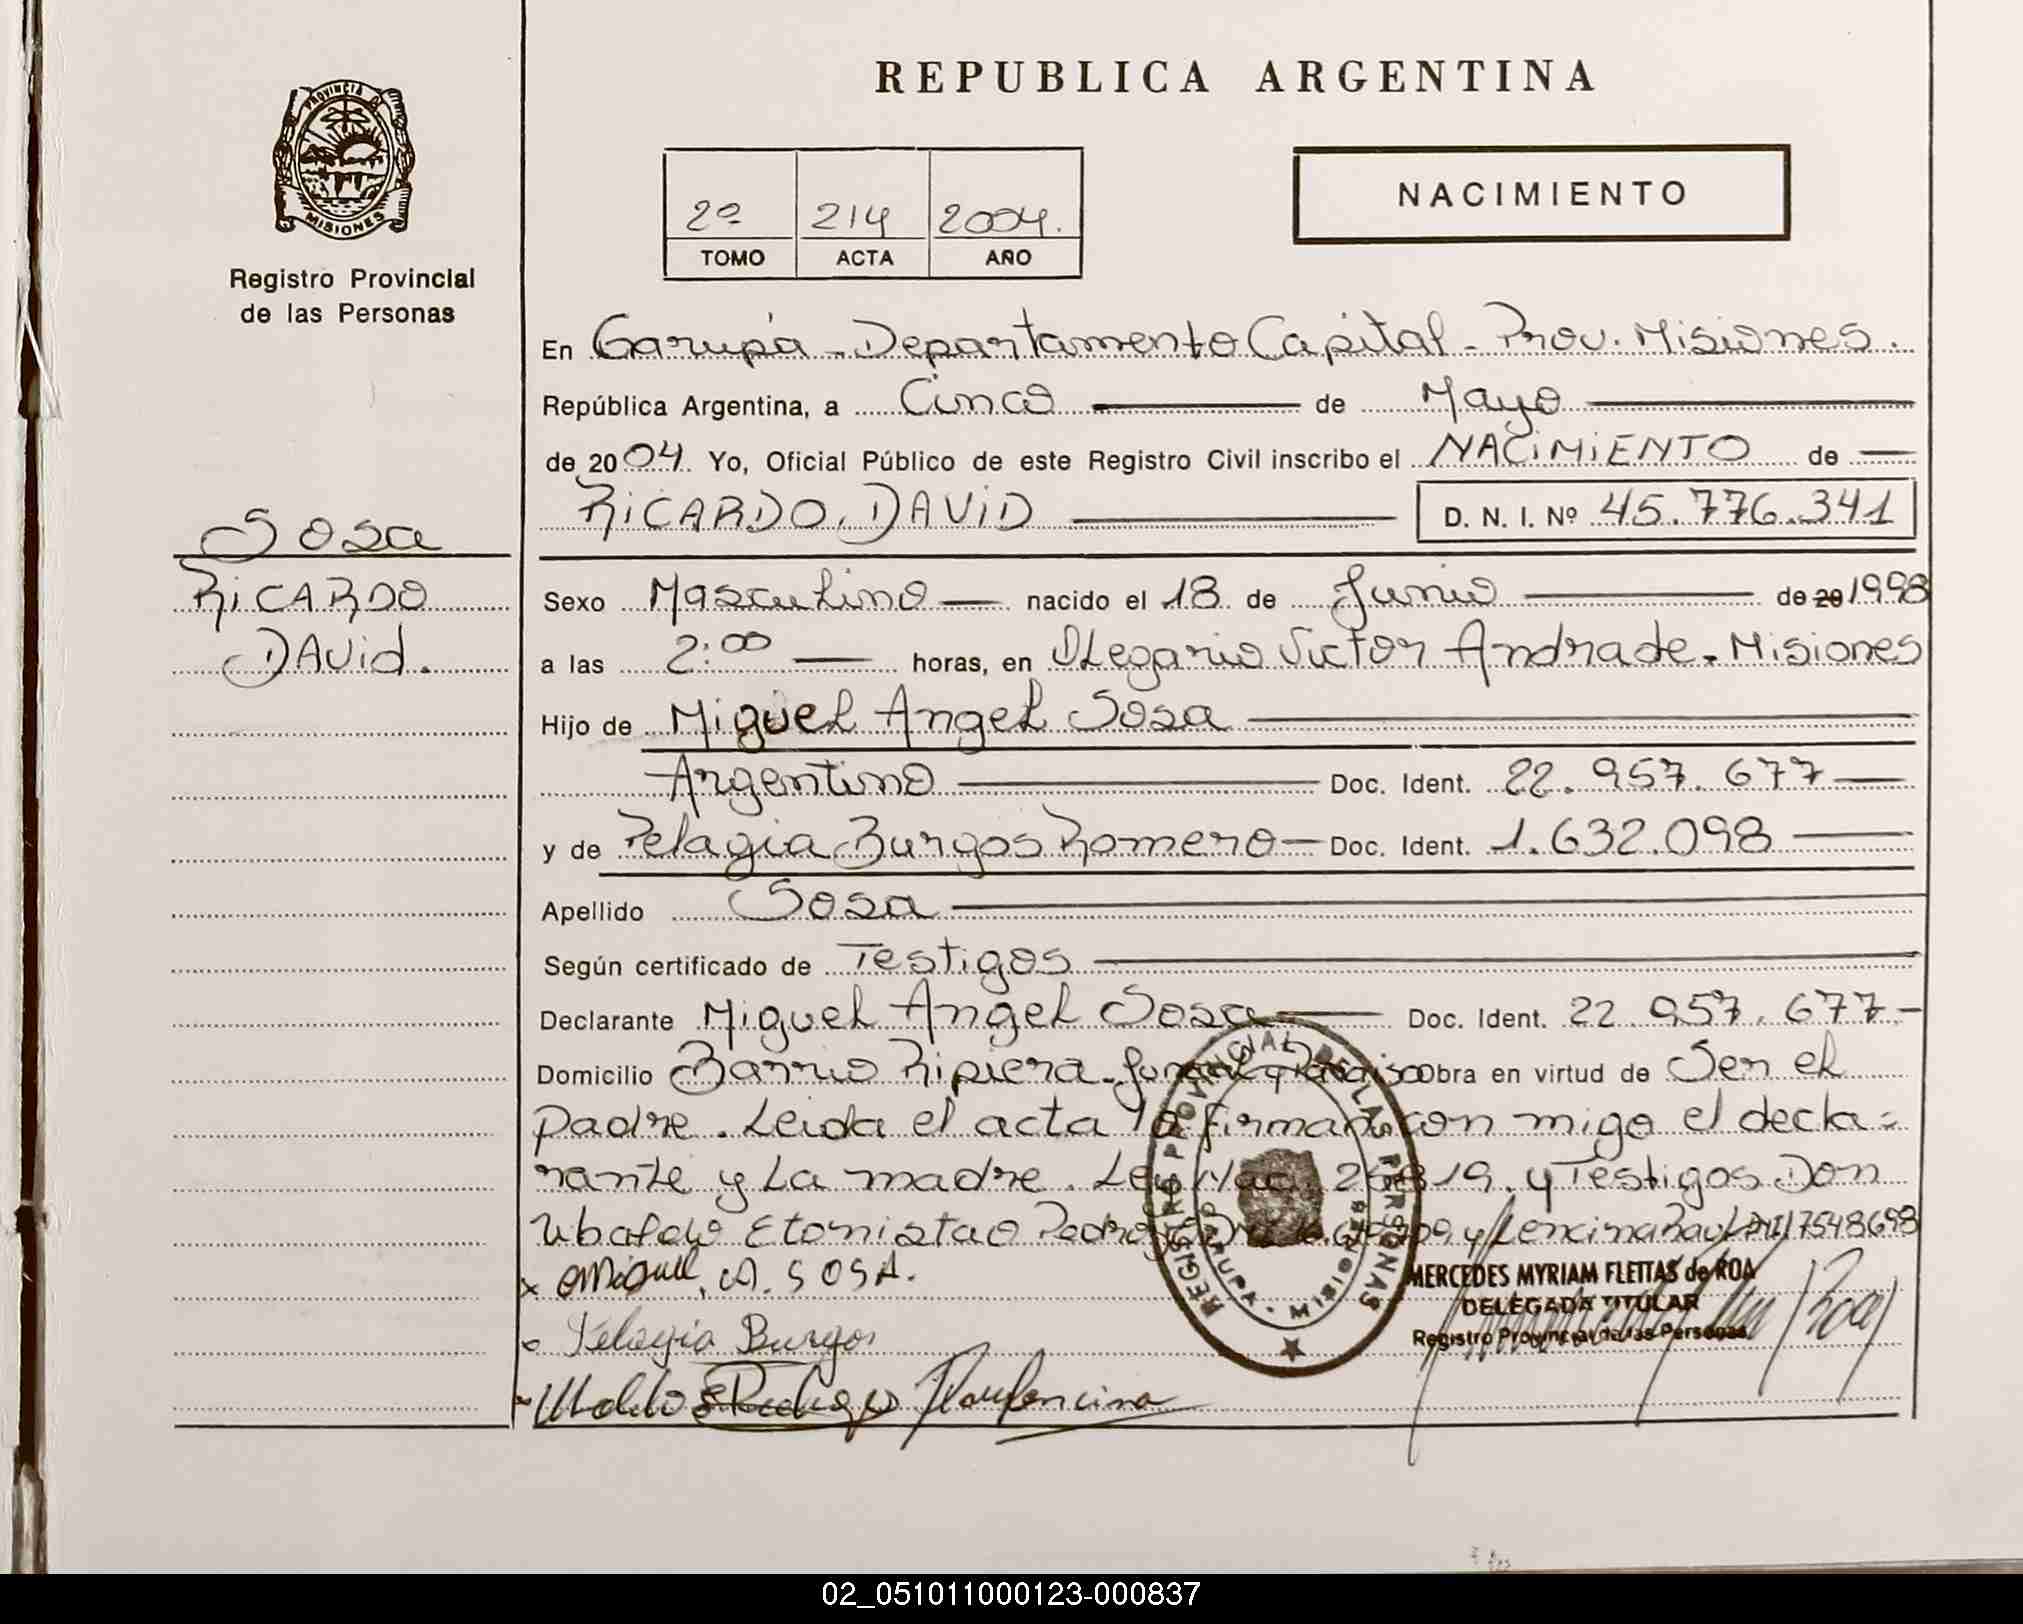 REPUBLICA ARGENTINA
PROVINCIA D
MISIONES
Registro Provincial
de las Personas
2º 214 2004.
TOMO ACTA AÑO
NACIMIENTO
En Garupá - Departamento Capital - Prov. Misiones.
República Argentina, a Cinco de Mayo
de 2004. Yo, Oficial Público de este Registro Civil inscribo el NACIMIENTO de
RICARDO, DAVID D. N. I. Nº 45.776.341
Sosa
RICARDO
DAVID.
Sexo Masculino nacido el 18 de Junio de 20 1998
a las 2:00 horas, en Olegario Victor Andrade. Misiones
Hijo de Miguel Angel Sosa
Argentino Doc. Ident. 22.957.677
y de Pelagia Burgos Romero Doc. Ident. 1.632.098
Apellido Sosa
Según certificado de Testigos
Declarante Miguel Angel Sosa Doc. Ident. 22.957.677
Domicilio Barrio Ripiera - Obra en virtud de Ser el
padre. Leida el acta la firman con migo el decla=
rante y La madre. Ley Nac. 25819. y Testigos Don
Pedrozo y Lencina Raul DNI 17548698
x Miguel, A. SOSA.
Pelagia Burgos
REGISTRO PROVINCIAL DE LAS PERSONAS
GARUPA - MISIONES
MERCEDES MYRIAM FLEITAS de ROA
DELEGADA TITULAR
Registro Provincial de las Personas
02_051011000123-000837